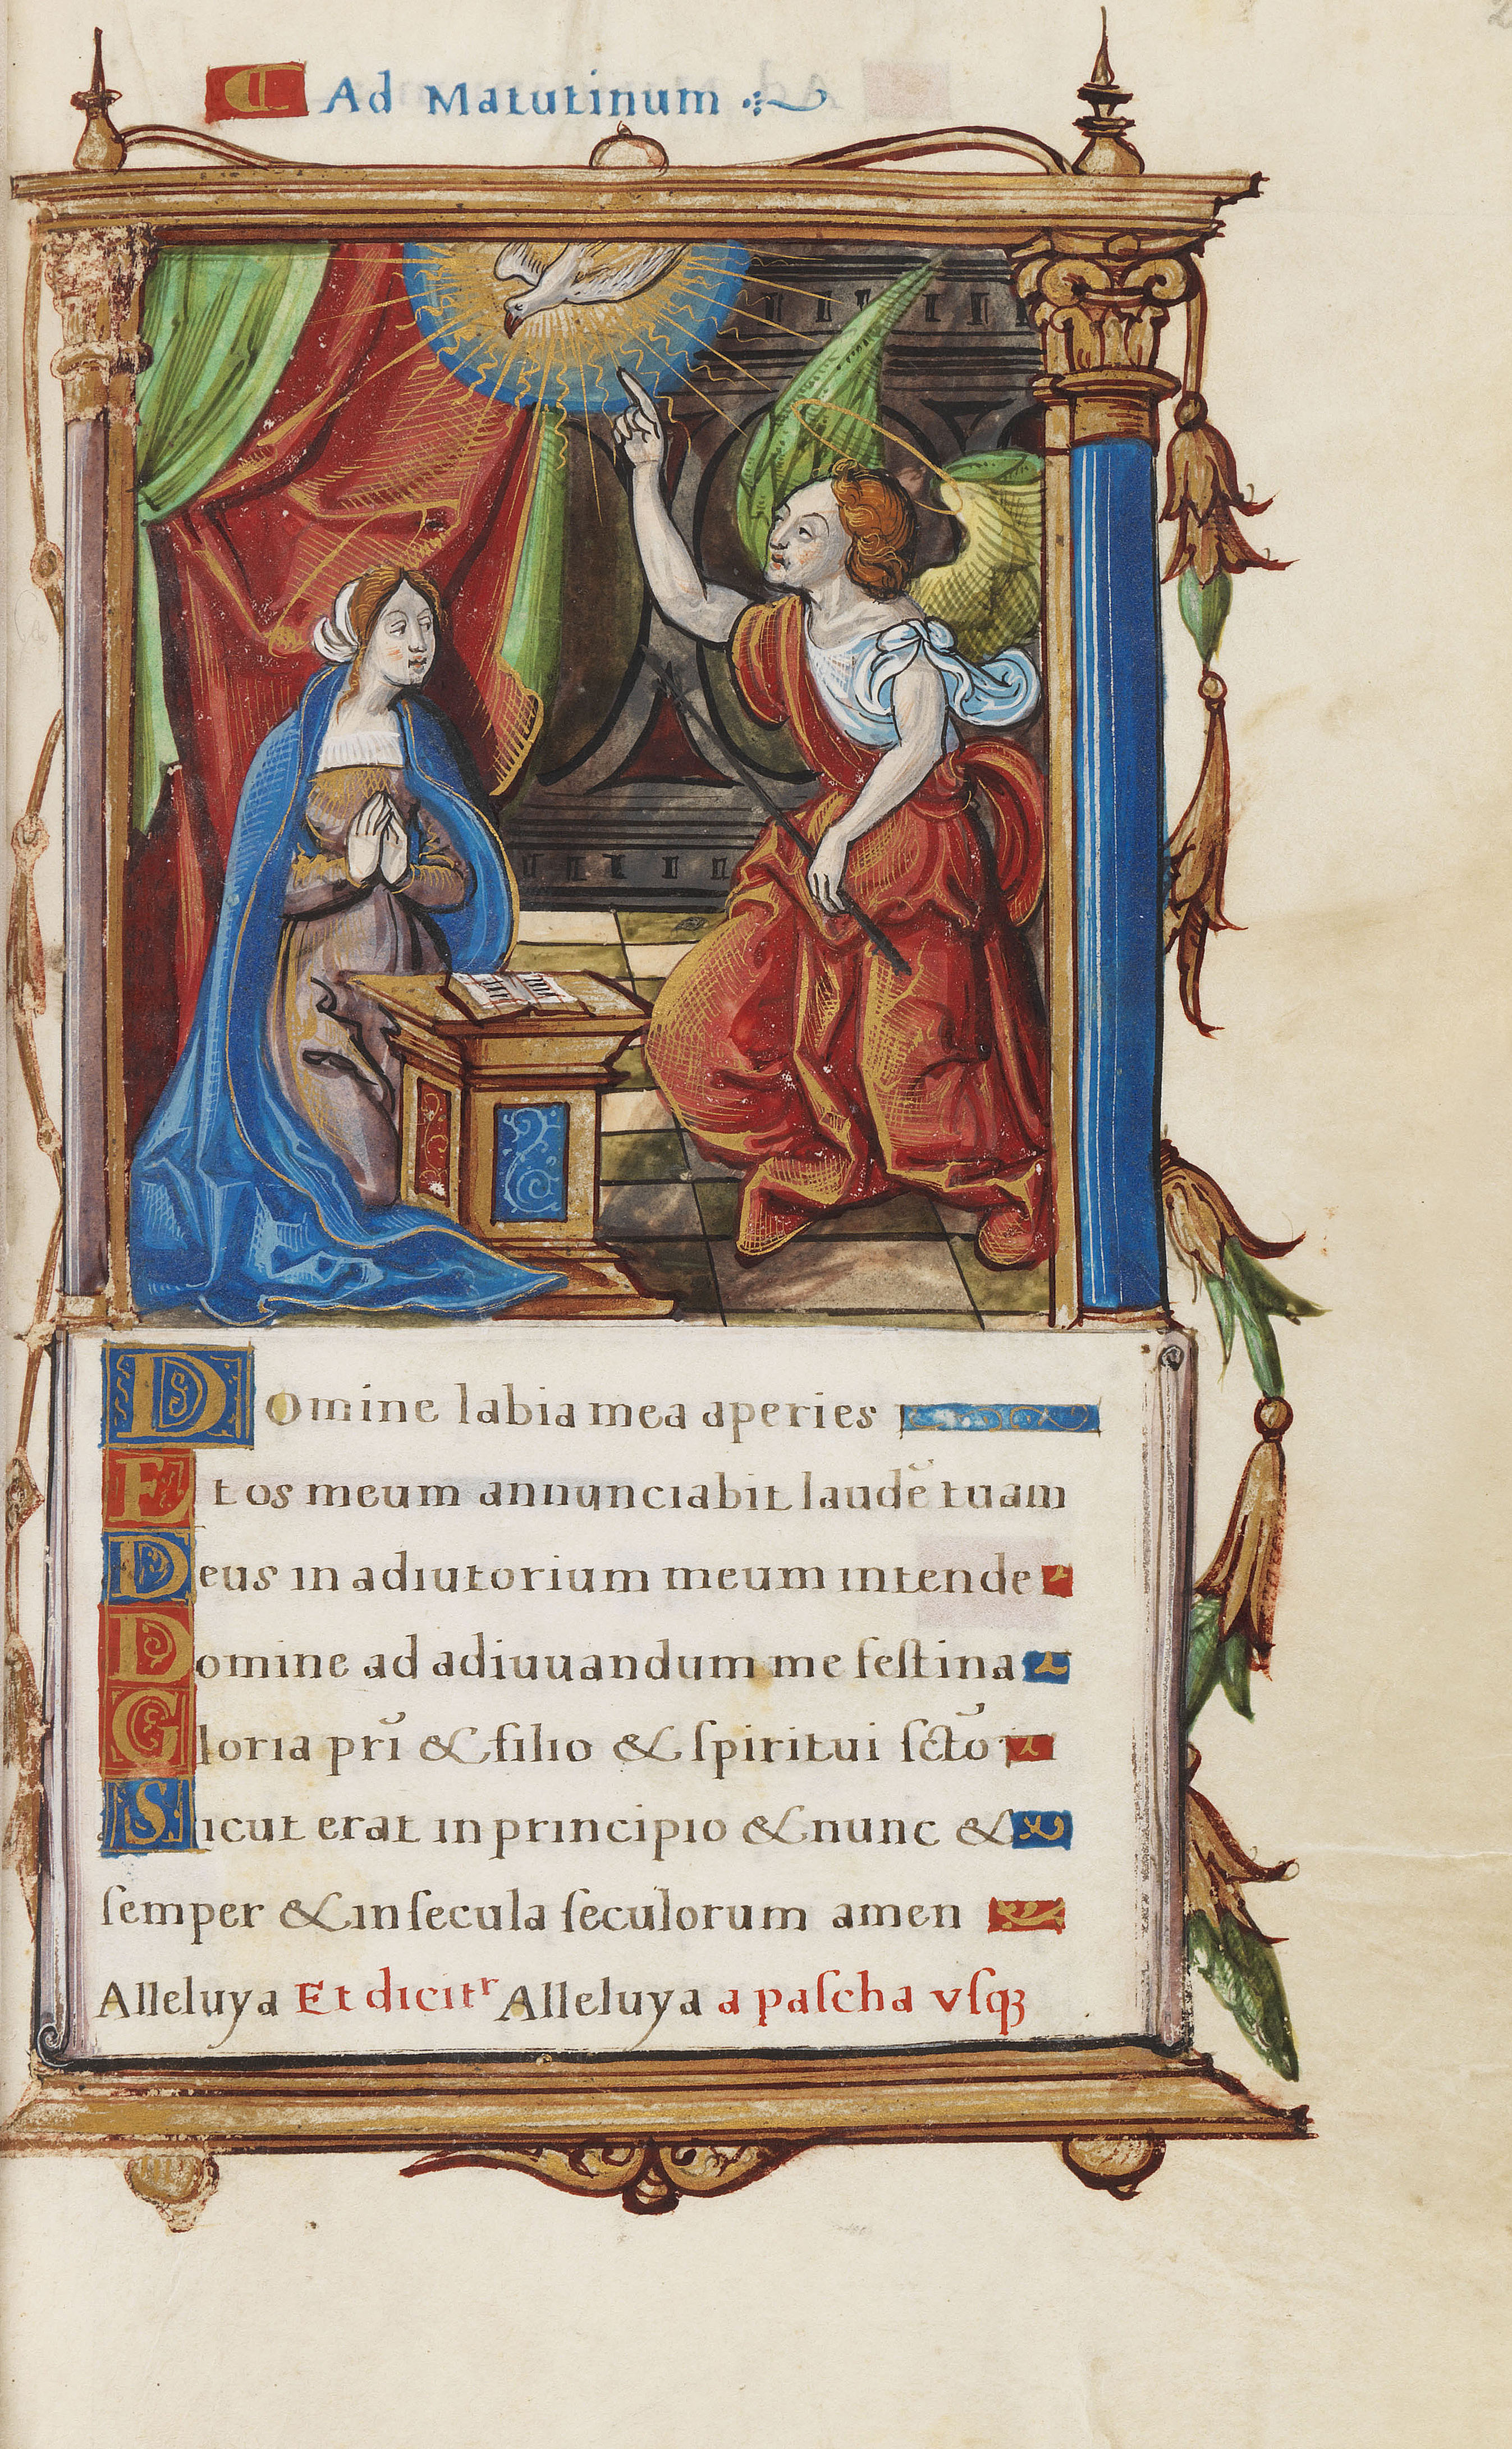 Ad Matutinum
Domine labia mea aperies
Et os meum annunciabit laudē tuam
Deus in adiutorium meum intende
Domine ad adiuuandum me feſtina
Gloria pr̄i & filio & ſpiritui ſct̄o
Sicut erat in principio & nunc &
ſemper & in ſecula ſeculorum amen
Alleluya Et dicitʳ Alleluya a paſcha vſqꝫ